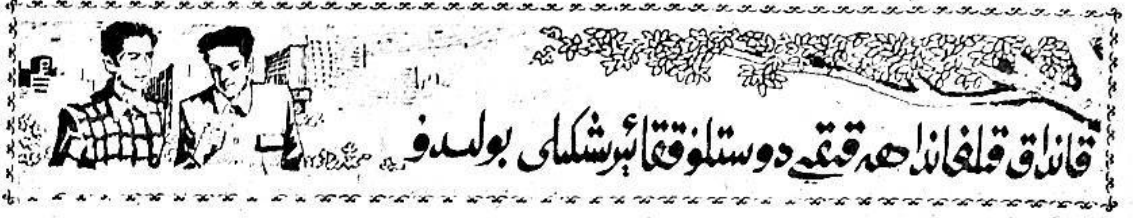 قانداق قىلغاندا ھەقىقىي دوستلۇققا ئېرىشكىلى بولىدۇ